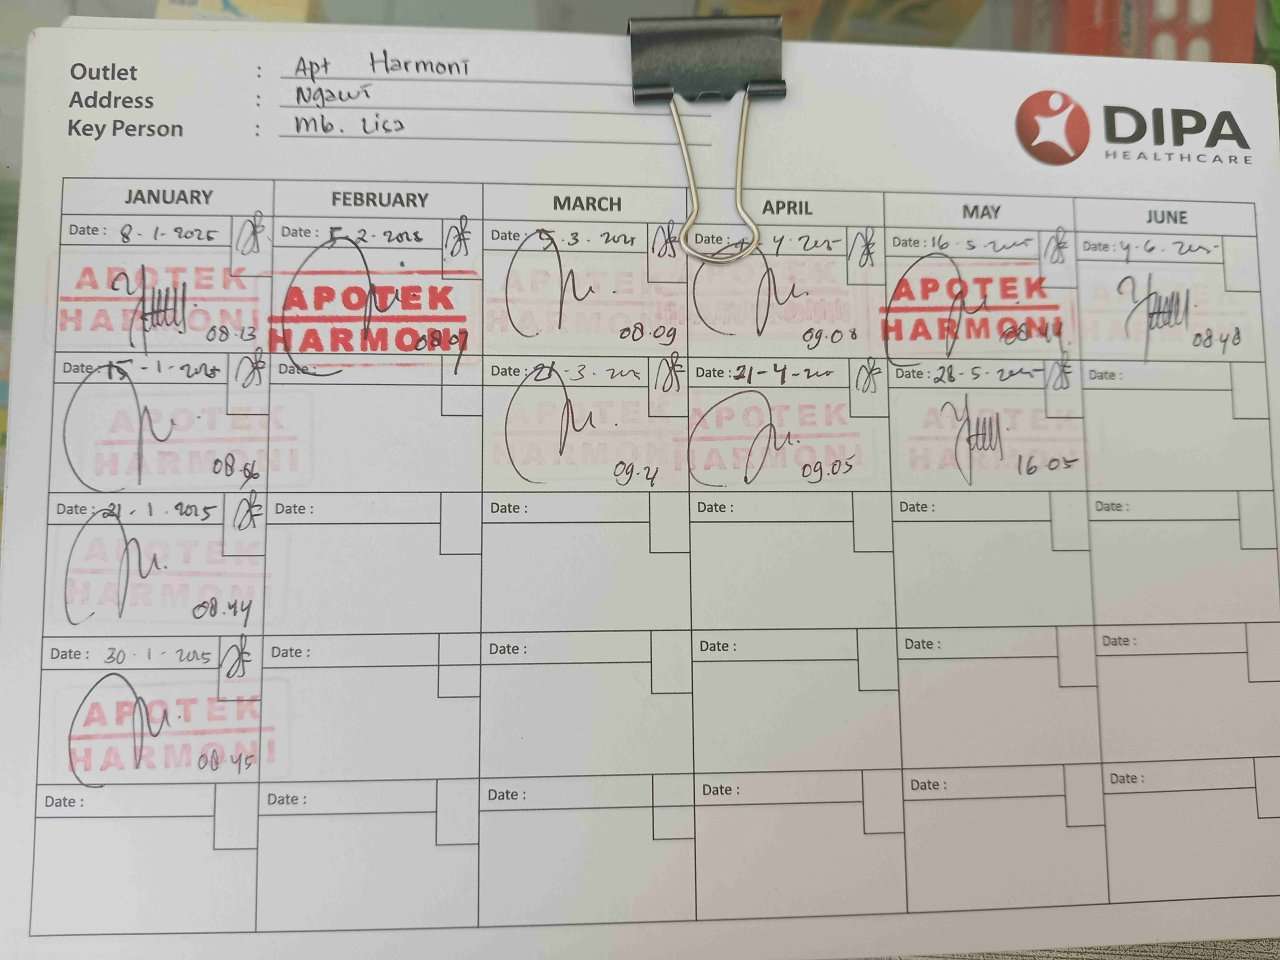 Outlet : Apt Harmoni
Address : Ngawi
Key Person : Mb. Lisa
DIPA
HEALTHCARE
JANUARY FEBRUARY MARCH APRIL MAY JUNE
Date : 8-1-2025 Date : 5-2-2025 Date : 5-3-2025 Date : -4-2025 Date : 16-5-2025 Date : 4-6-2025
APOTEK APOTEK APOTEK
HARMONI HARMONI HARMONI
08.13 08.07 08.09 09.08 08.48
Date : 15-1-2025 Date : Date : 21-3-2025 Date : 21-4-2025 Date : 28-5-2025 Date :
APOTEK APOTEK APOTEK
HARMONI HARMONI HARMONI
08. 09.21 09.05 16.05
Date : 21-1-2025 Date : Date : Date : Date : Date :
APOTEK
HARMONI
08.44
Date : 30-1-2025 Date : Date : Date : Date : Date :
APOTEK
HARMONI
08.45
Date : Date : Date : Date : Date : Date :